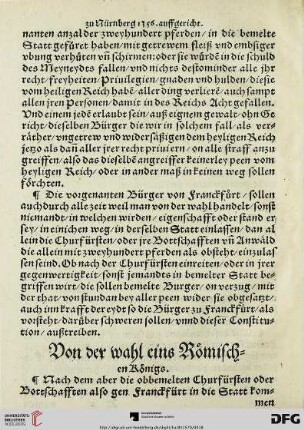 zu Nürnberg 1356. auffgericht.
nanten anzal der zweyhundert pferden / in die bemelte
Statt gefüret haben / mit getrewem fleiß vnd embsiger
vbung verhüten vñ schirmen: oder sie würden in die schuld
des Meyneydts fallen / vnd nichts destominder alle jhr
recht / freyheiten Priuilegien / gnaden vnd hulden / die sie
vom heiligen Reich habē / aller ding verlierē / auch sampt
allen jren Personē / damit in des Reichs Acht gefallen.
Vnd einem jedē erlaubt sein / auß eignem gewalt / ohn Ge
richt / dieselben Bürger die wir in solchem fall / als ver-
räther / vngetrew vnd widersässigen dem heyligen Reich
jetzo als dañ aller jrer recht priuiern / on alle straff anzu
greiffen / also das dieselbē angreiffer keinerley peen vom
heyligen Reich / oder in ander maß in keinen weg sollen
förchten.
¶ Die vorgenanten Bürger von Franckfürt / sollen
auch durch alle zeit weil man von der wahl handelt / sonst
niemandt / in welchen wirden / eigenschafft oder stand er
sey / in einichen weg / in derselben Statt einlassen / dan al
lein die Churfürsten / oder jre Bottschafften vñ Anwäld
die allein mit zweyhundert pferden als obstehe / einzulas
sen seind. Ob nach der Churfürsten einreiten / oder in jrer
gegenwertigkeit / sonst jemandts in bemelter Statt be-
griffen wirt / die sollen bemelte Burger / on verzug / mit
der that / von stundan bey aller peen wider sie obgesetzt /
auch im krafft der eydt so die Bürger zu Franckfürt / als
vorsteht / darüber schweren sollen / vnnd dieser Constitu-
tion / außtreiben.
Von der wahl eins Römisch-
en Königs.
¶ Nach dem aber die obbemelten Churfürsten oder
Bottschafften also gen Franckfürt in die Statt kom-
men
DFG